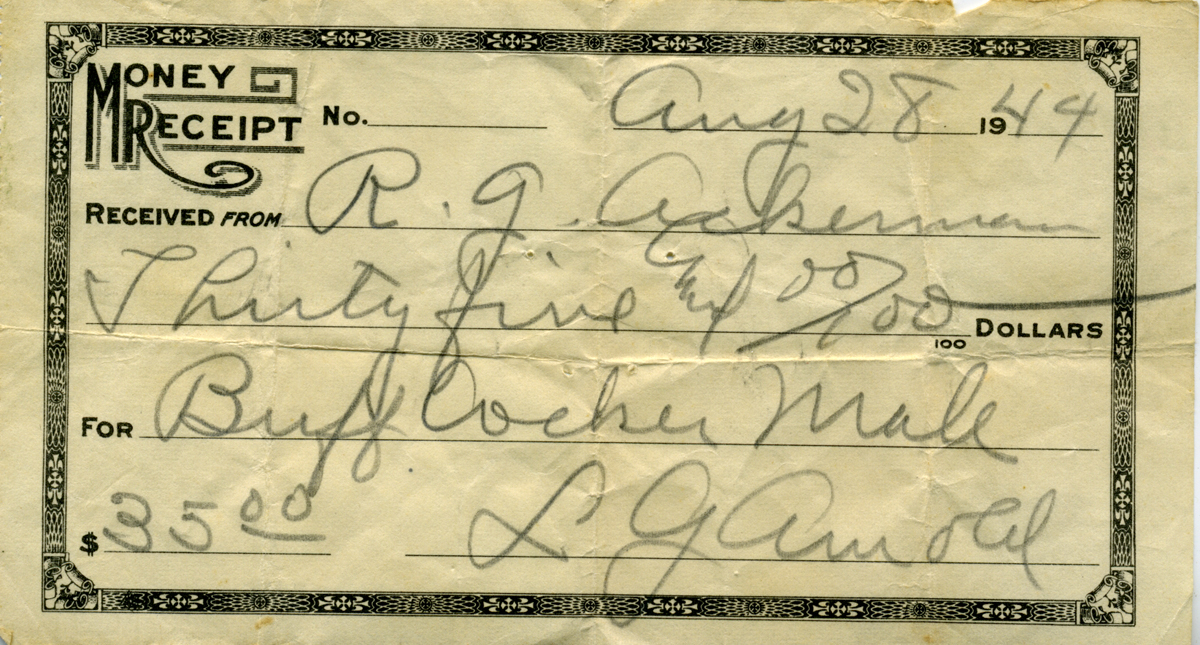 MONEY RECEIPT No. Aug 28 1944
RECEIVED FROM R. G. Ackerman
Thirty five and 00/100 100 DOLLARS
FOR Buff Cocker Male
$ 35 00 L G Arnold